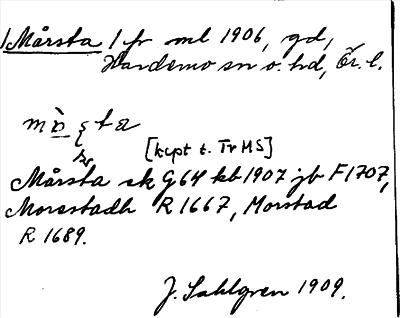 Mårsta 1 fr ml 1906, gd,
Hardemo sn o. hd, Ör. l.
[kept t. Tr MS]
Mårsta sk G 64 kb 1907 jb F 1707,
Morestadh R 1667, Morstad
R 1689.
J. Sahlgren 1909.